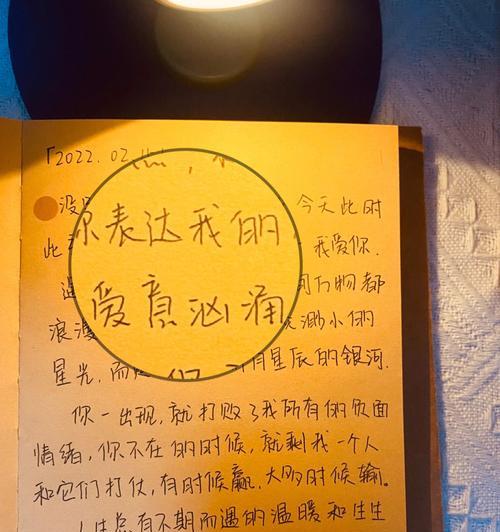 「2022.02.
没 今天此时
表达我的
此 我爱你.
爱意汹涌
万物都
浪漫 渺小的
星光,而 有星辰的银河.
你一出现,就打败了我所有的负面
情绪,你不在的时候,就剩我一个人
和它们打仗,有时候赢,大多时候输。
总有不期而遇的温暖和生生